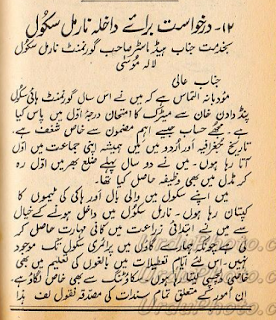 ۱۲- درخواست برائے داخلہ نارمل سکول
بخدمت جناب ہیڈ ماسٹر صاحب گورنمنٹ نارمل سکول
لالہ موسیٰ
جناب عالی
مؤدبانہ التماس ہے کہ میں نے اس سال گورنمنٹ ہائی سکول
پنڈ دادن خان سے میٹرک کا امتحان درجہ اول میں پاس کیا
ہے۔ مجھے حساب جیسے اہم مضمون سے خاص شغف ہے۔
تاریخ جغرافیہ اور اردو میں میں ہمیشہ اپنی جماعت میں اول
آتا رہا ہوں۔ میں نے دو سال پہلے ضلع بھر میں اول رہ
کر مڈل میں بھی وظیفہ حاصل کیا تھا۔
میں اپنے سکول میں والی بال اور ہاکی کی ٹیموں کا
کپتان رہا ہوں۔ نارمل سکول میں داخل ہونے کے خیال
سے میں نے ابتدائی زراعت میں کافی مہارت حاصل کر
لی ہے۔ چونکہ ہمارے گاؤں میں پرائمری سکول تک موجود
نہیں۔ اس لئے ایام تعطیلات میں بالغوں کی تعلیم میں بھی
خاص دلچسپی لیتا رہا ہوں۔ سکاؤٹنگ سے بھی خاص لگاؤ ہے
ان امور کے متعلق تمام سندات کی مصدقہ نقول لف ہذا
UrduPhoto.com